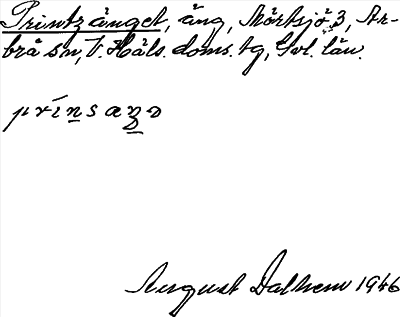 Printzänget, äng, Mörtsjö 3, Ar-
brå sn, V. Häls. doms. tg, Gvl. län.
prinsaŋə
August Dalhem 1946